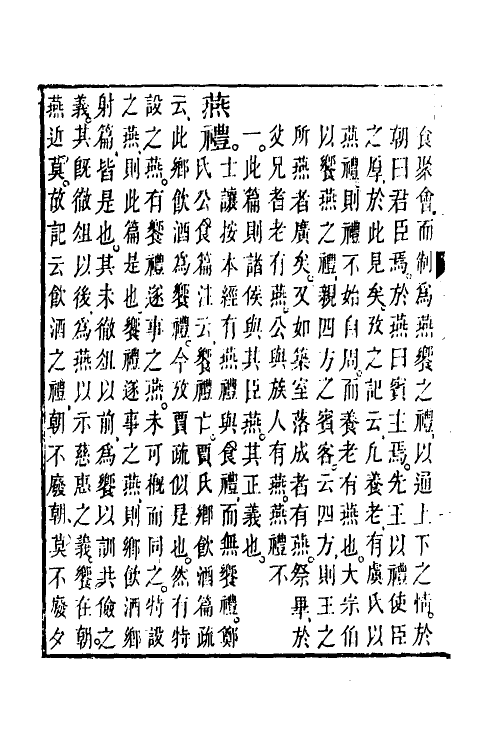 食聚會而制為燕饗之禮以通上下之情於
朝曰君臣焉於燕曰賓主焉先王以禮使臣
之厚於此見矣攷之記云凡養老有虞氏以
燕禮則禮不始自周而養老有燕也大宗伯
以饗燕之禮親四方之賓客云四方則王之
所燕者廣矣又如築室落成者有燕祭畢於
父兄者老有燕公與族人有燕燕禮不
一此篇則諸侯與其臣燕其正義也
士讓按本經有燕禮與食禮而無饗禮鄭
燕禮氏公食篇注云饗禮亡賈氏鄉飲酒篇疏
云此鄉飲酒為饗禮今攷賈疏似是也然有特
設之燕有饗禮遂事之燕未可槪而同之特設
之燕則此篇是也饗禮遂事之燕則鄉飲酒鄉
射篇皆是也其未徹俎以前為饗以訓共儉之
義其既徹俎以後為燕以示慈惠之義饗在朝
燕近莫故記云飲酒之禮朝不廢朝莫不廢夕